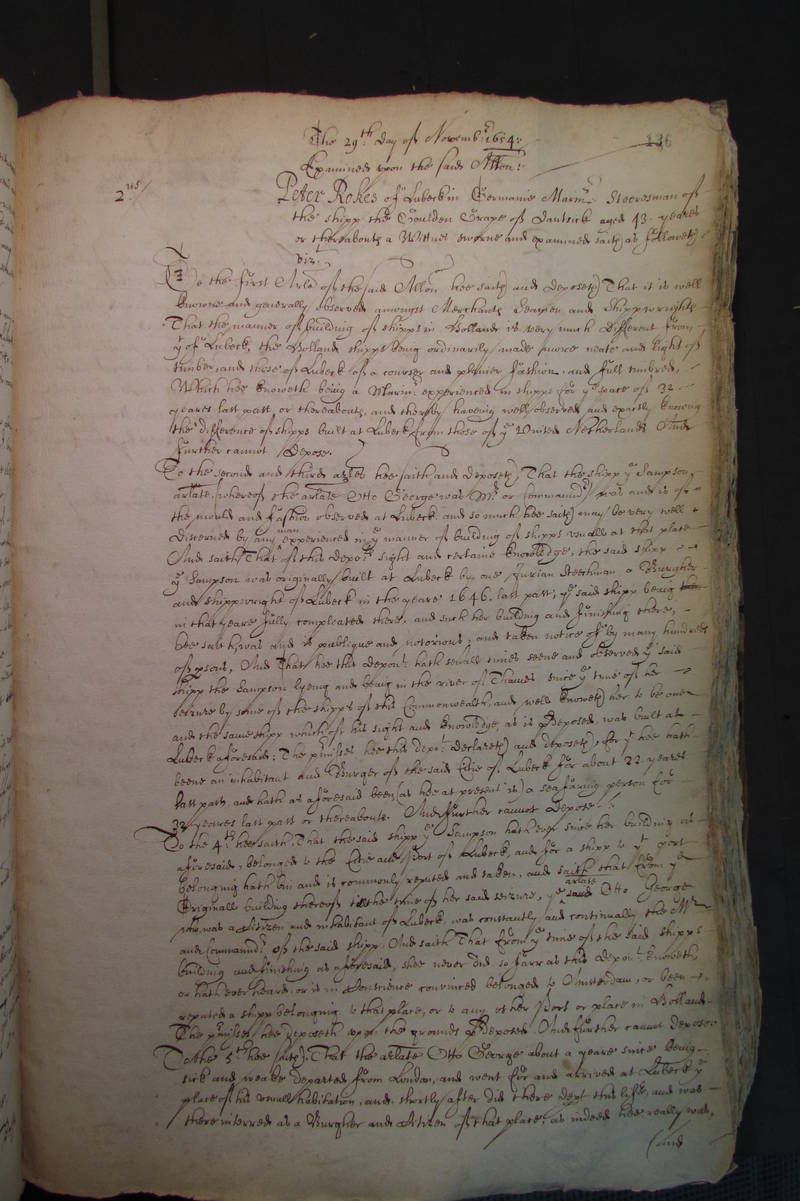 136
The 29th. day of Novembr. 1654:
Examined upon the said Allon:
2us/
Peter Rokes of Lubeck in Germanie Marinr. Steeresman of
the shipp the Goulden Grape of Dantsick aged 43. yeares
or thereabouts a Wittnes sworne and examined saith as followeth
vizt.
To the first Arle of the said Allon hee saith and deposeth That it is well
knowne and generally observed amongst Merchants Seamen and Shippwrights
That the manner of building of shipps in Holland is very much different from
yt of Lubeck, the Holland shipps being ordinarily made more neate and light of
timber, and those of Lubeck of a courser and plainer fashion, and full timbred.
Which hee knoweth being a Marinr. experienced in shipps for ye space of 32.
yeares last past, or thereabouts, and thereby having well observed and expertly knowing
the difference of shipps built at Lubeck from those of ye United Netherlands And
further cannot depose.
To the second and third arles hee saith and deposeth, That the shipp ye Sampson
arlate, whereof the arlate Otto George was Mr. or Commandr. was and is of
the mould and fashion observed at Lubeck and so much hee saith may be very well
discerned by any man experienced in ye manner of building of shipps usuall at that place
And saith That of this depots. sight and certaine knowledge, the said shipp
ye Sampson was originally built at Lubeck by one Jurian Steckman a Burgher
and shippwright of Lubeck in the yeare 1646. last past, ye said shipp being
in that yeare fully compleated there, and such her building and finishing there,
hee saith, was and is publique and notorious, and taken notice of by many hundreds
of psons, And That hee this depont. hath severall times seene and observed ye said
shipp the Sampson lyeing and being in the river of Thames since ye time of her
seizure by some of the shipps of this Commonwealth, and well knoweth her to be one
and the same shipp which of his sight and knowledge, as is predeposed, was built at
Lubeck aforesaid: The pmisses hee this dept. declareth and deposeth, for yt hee hath
beene an inhabitant and Burger of the said Citie of Lubeck for about 22 yeares
last past, and hath as aforesaid been (as hee at present is) a seafaring person for
32 yeares last past or thereabouts. And further cannot depose.
To the 4th. hee saith, That the said shipp ye Sampson hath ever since her building as
aforesaid, belonged to the Citie and Port of Lubeck, and for a shipp to yt port
belonging hath bin and is commonly reputed and taken, and saith that from ye
Originall building thereof till the time of her said seizure, ye said arlate Otto George
who was a Citizen and inhabitant of Lubeck, was constantly and continually the Mr.
and Commandr. of the said shipp. And saith That from ye time of the said shipps
building and finishing as aforesaid, shee never did, so farr as this depont. knoweth,
or hath ever heard, or is in Conscience convinced belonged to Amsterdam, or been
reputed a shipp belonging to that place, or to any other port or place in Holland.
The pmisses hee deposeth upon the grounds predeposed. And further cannot depose.
To the 5th. hee saith, That the arlate Otto George about a yeare since being
sick and weake departed from London, and went for and arrived at Lubeck ye
place of his usuall habitation, and shortly after did there dept this life, and was
there interred as a Burgher and Citizen of that place, as indeed hee really was,
(and